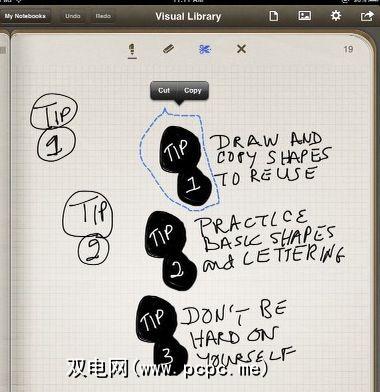 My Notebooks Undo Redo Visual Library
19
Cut Copy
TIP
1
TIP
1
DRAW AND
COPY SHAPES
TO REUSE
TIP
2
TIP
2
PRACTICE
BASIC SHAPES
and LETTERING
TIP
3
DON'T BE
HARD ON
YOURSELF
双电网(www.pcpc.me)